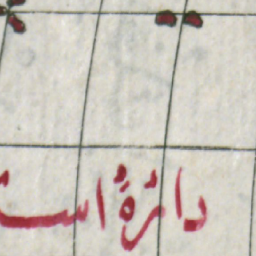 دائرهٔ است